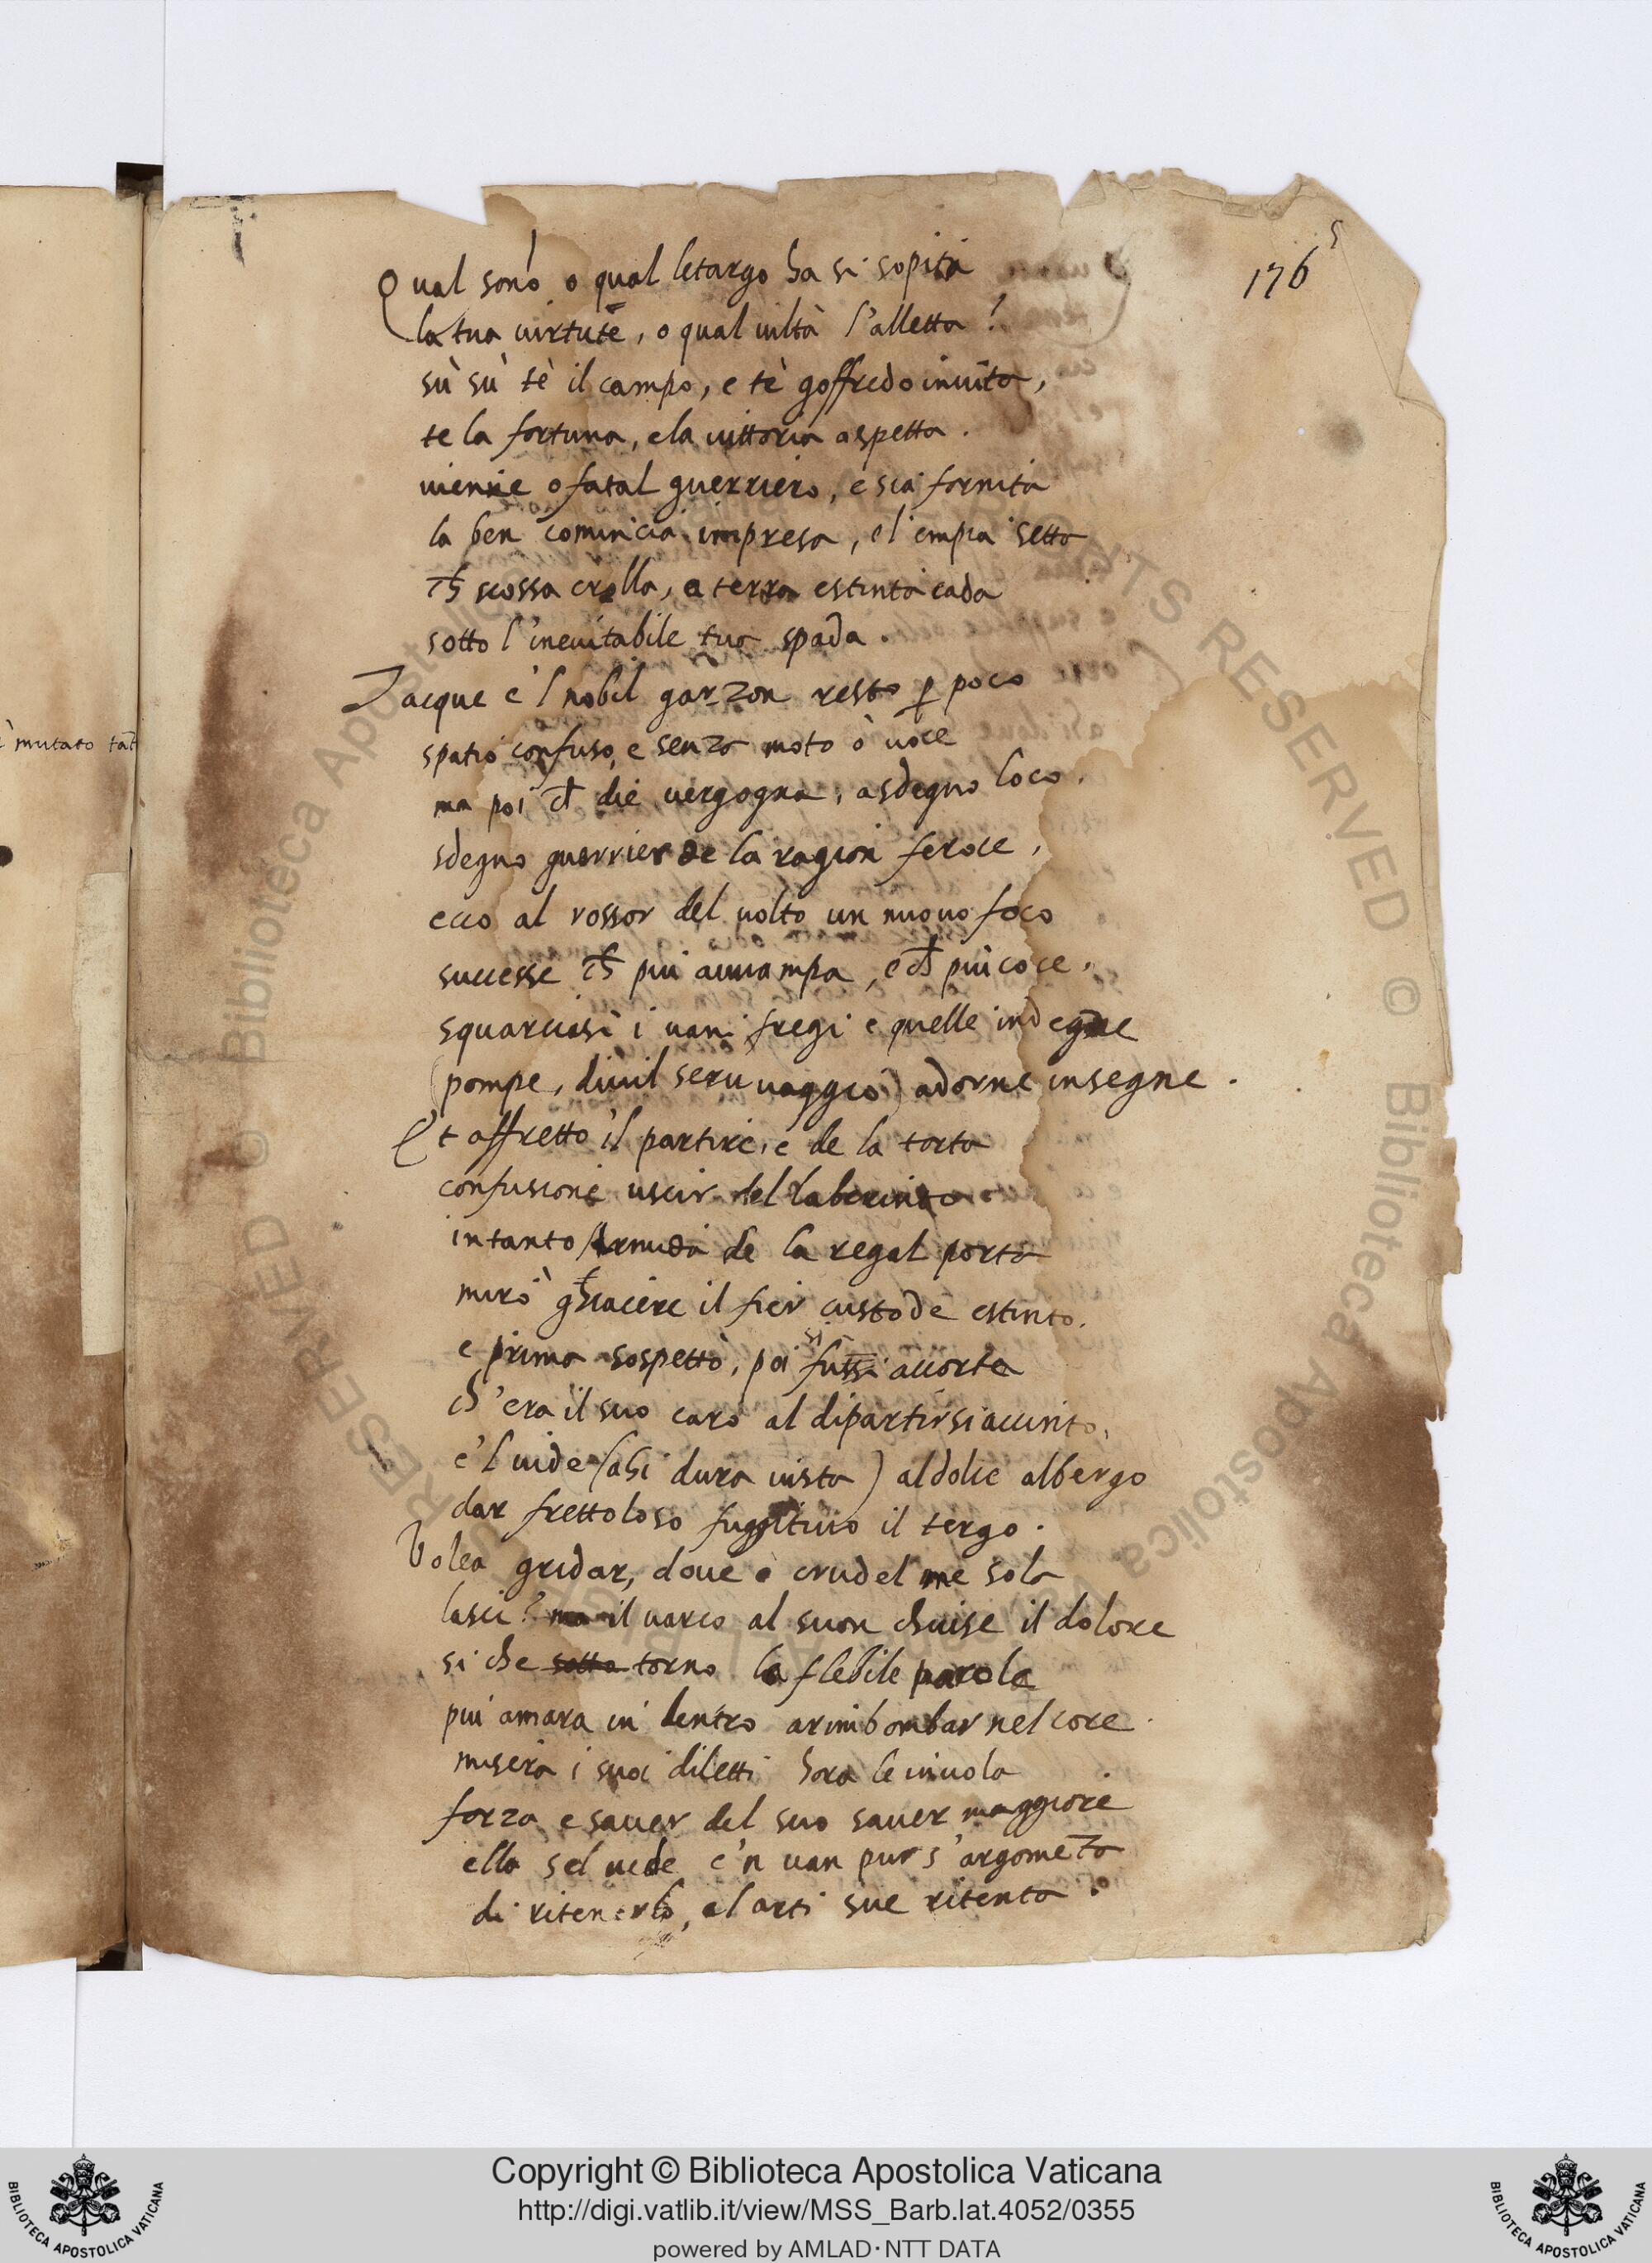 176
5
Qual sono o qual letargo ha si sopita
la tua virtute, o qual viltà l'alletta?
sù sù tè il campo, e tè goffredo invita,
te la fortuna, e la vittoria aspetta.
vienne o fatal guerriero, e sia fornita
la ben comincia impresa, e l'empia setta
ch scossa crolla, a terra estinta cada
sotto l'inevitabile tua spada.
Tacque e'l nobil garzon resto p poco
spatio confuso, e senza moto ò voce
ma poi ch diè vergogna, a sdegno loco.
sdegno guerrier de la ragion feroce,
ecco al rossor del volto un nuovo foco
successe ch piu avvampa, e ch più coce.
squarciasi i vani fregi e quelle indegne
(pompe, di vil servvaggio) adorne insegne.
Et affretto il partire, e de la torta
confusione uscir del laberinto.
intanto Armida de la regal porta
mirò ghiacere il fier custode estinto.
e prima sospettò, poi si fu accorta
ch'era il suo caro al dipartirsi accinto,
e'l vide (ahi dura vista) al dolce albergo
dar frettoloso fuggitivo il tergo.
Volea gridar, dove o crudel me sola
lasci? ma il varco al suon chiuse il dolore
si che sotto torno la flebile parola
piu amara in dentro a rimbombar nel core.
misera i suoi diletti hora le invola
forza e saver del suo saver maggiore
ella sel vede e'n van pur s'argometa
di ritenerlo, e l arti sue ritenta.
è mutato
Copyright © Biblioteca Apostolica Vaticana
http://digi.vatlib.it/view/MSS_Barb.lat.4052/0355
powered by AMLAD·NTT DATA
BIBLIOTECA APOSTOLICA VATICANA
BIBLIOTECA APOSTOLICA VATICANA